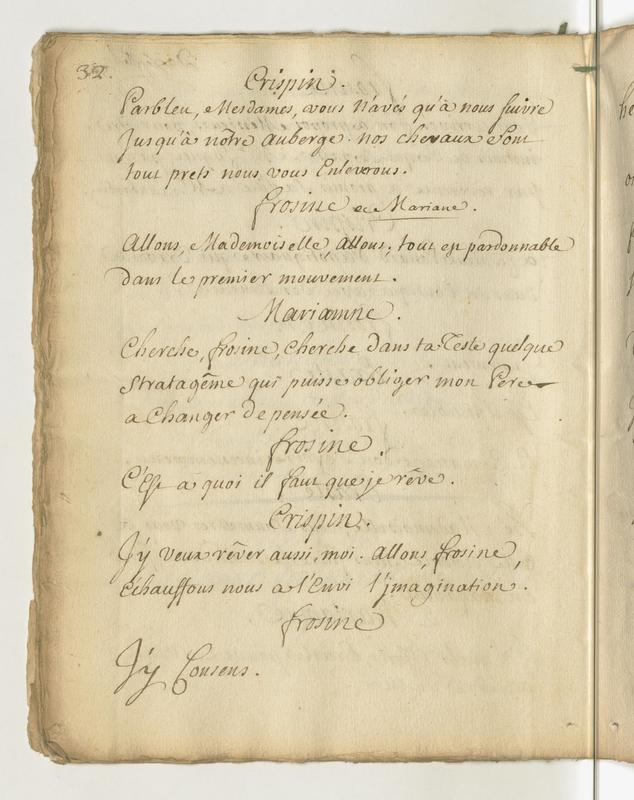 32.
Crispin.
Parbleu, Mesdames, vous n'avés qu'à nous suivre
Jusqu'à nôtre auberge. nos chevaux sont
tout prets nous vous Enléverons.
frosine a Mariane.
Allons, Mademoiselle, allons; tout est pardonnable
dans le premier mouvement.
Marianne.
Cherche, frosine, cherche dans ta Teste quelque
Stratagême qui puisse obliger mon Pere
a Changer de pensée.
frosine.
C'Est à quoi il faut que je rêve.
Crispin.
J'y veux rêver aussi, moi. Allons, frosine,
Echauffons nous a l'Envi l'jmagination.
frosine
J'y Consens.